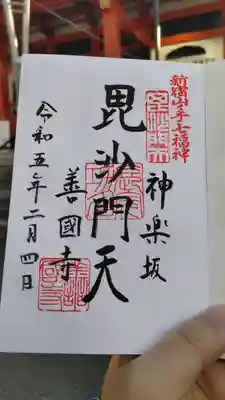 新宿山ノ手七福神
神楽坂
毘沙門天
善國寺
令和五年二月四日